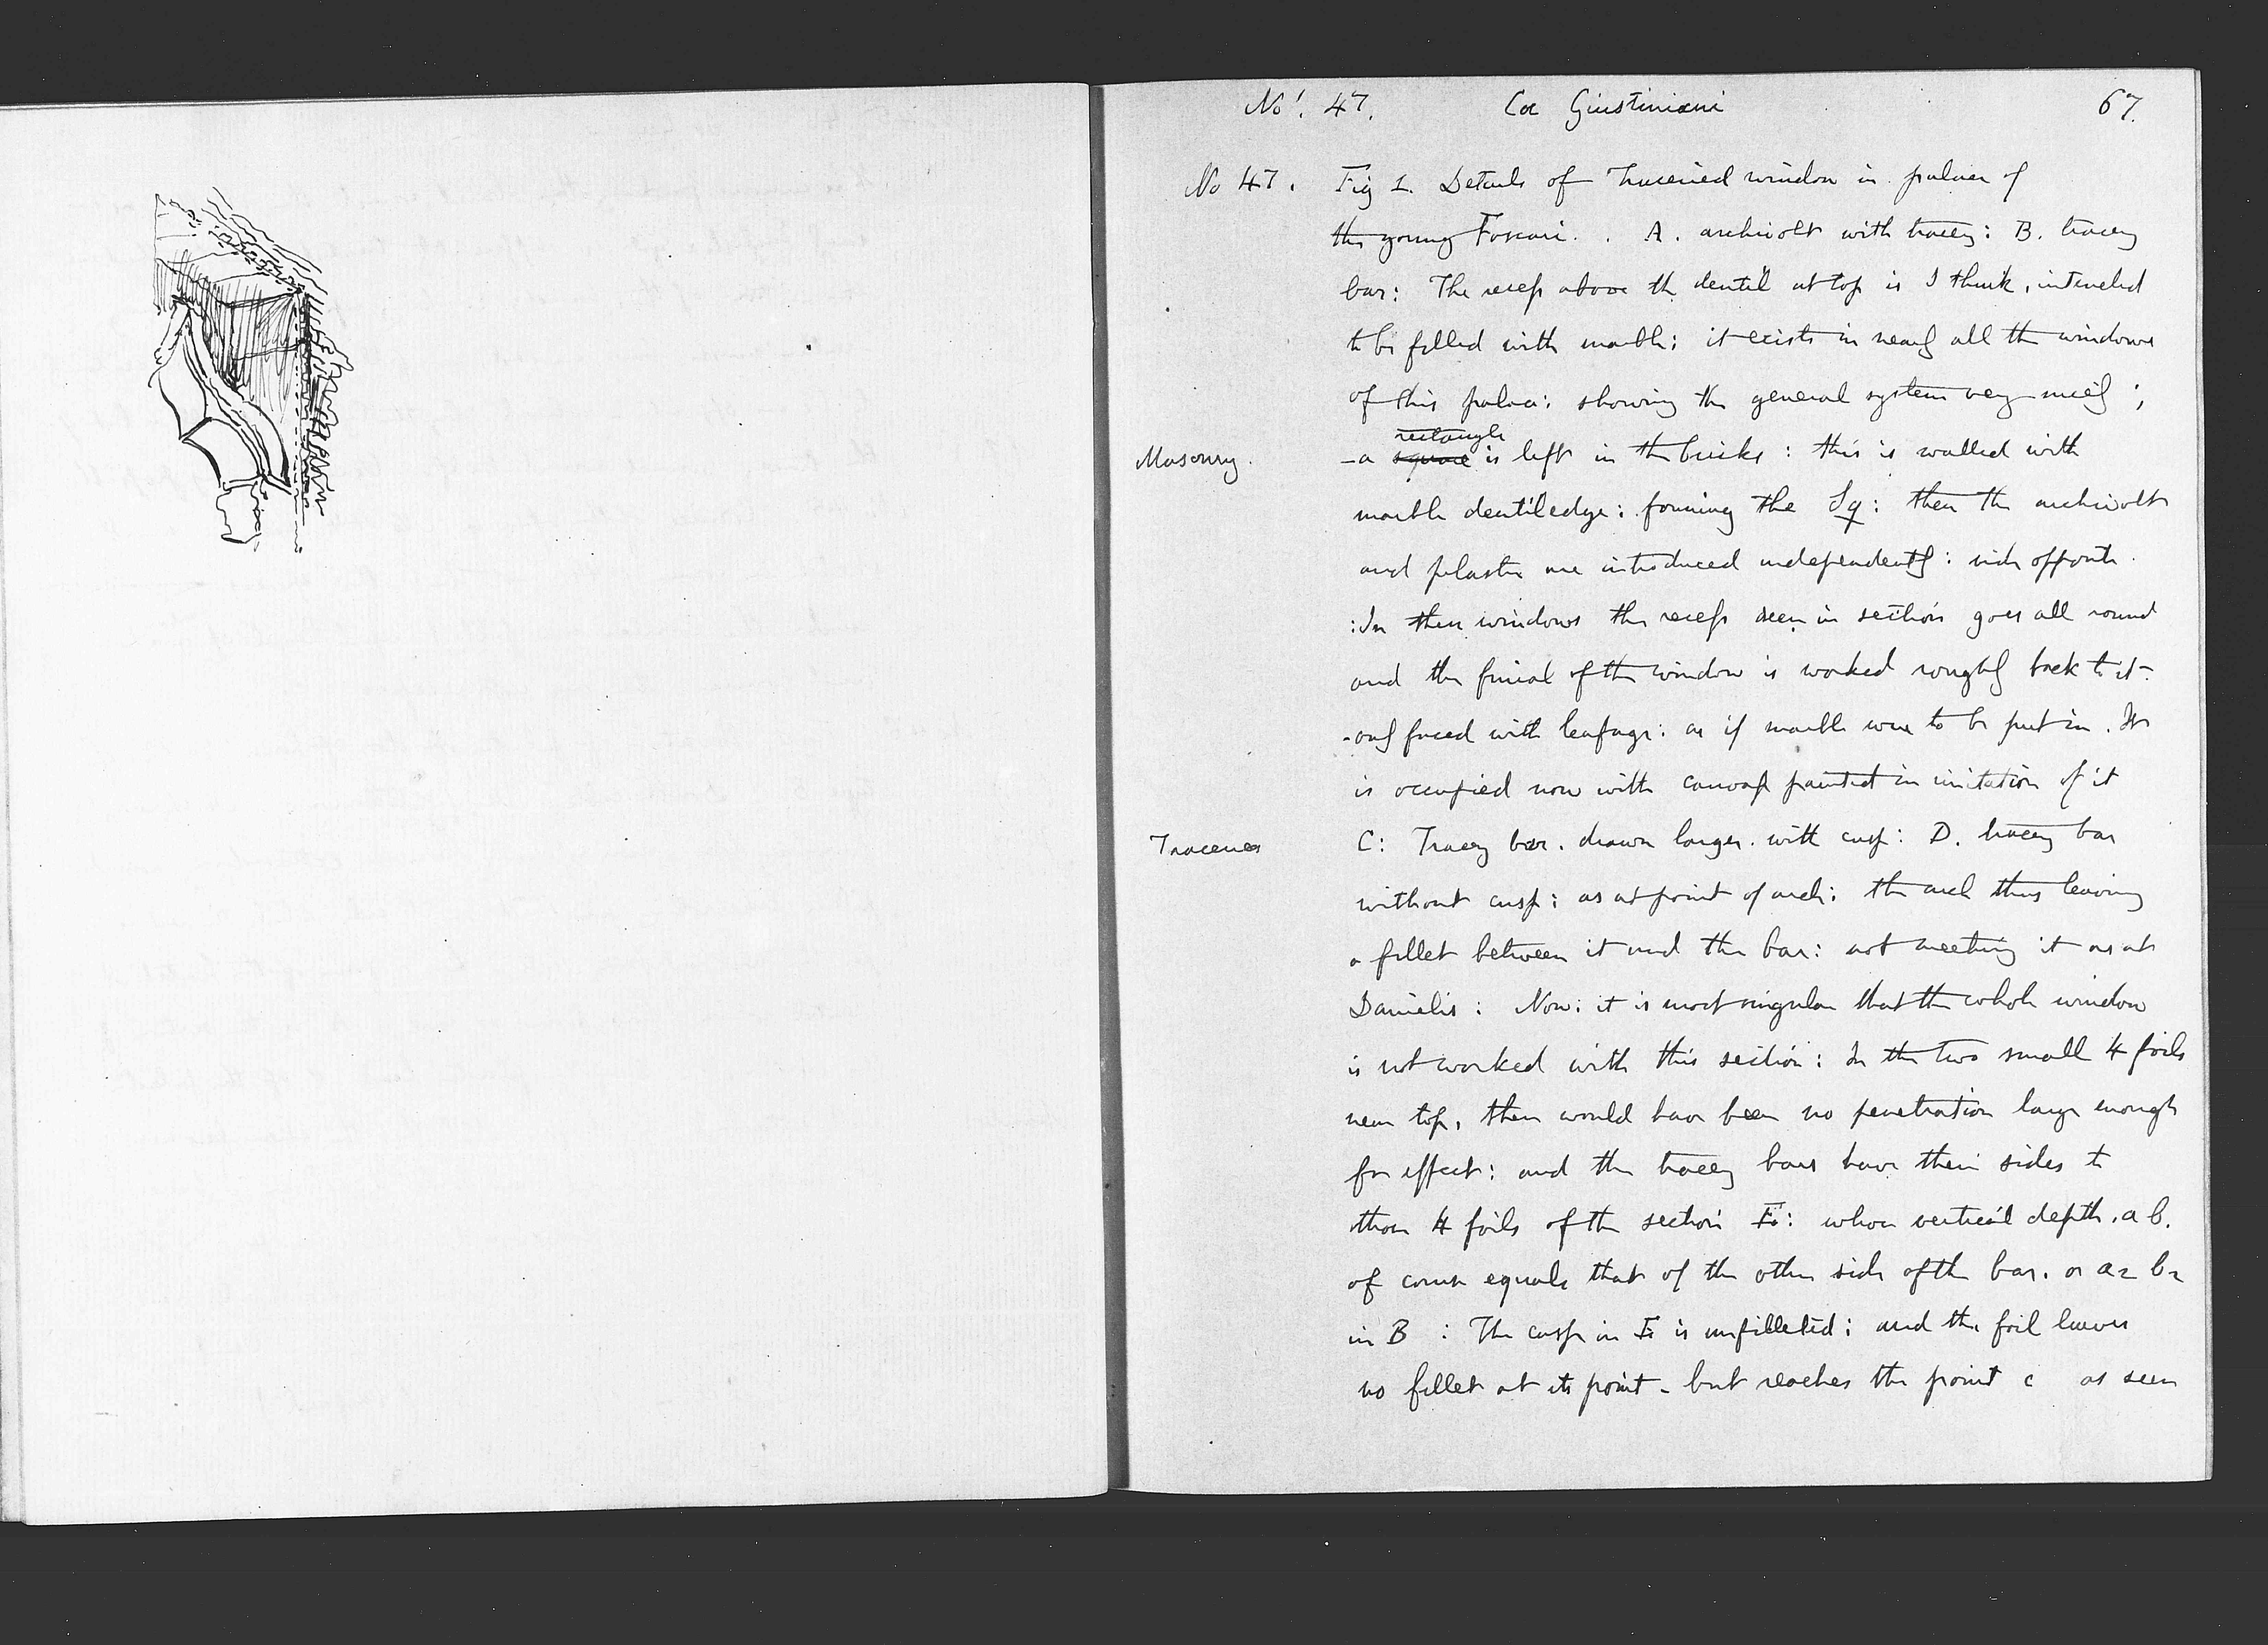 No! 47. Ca Giustiniani 67.
No 47. Fig 1. Details of Traceried window in palace of
the young Foscari. . A. archivolt with tracery: B. tracery
bar: The recess above the dentil at top is I think, intended
to be filled with marble: it exists in nearly all the windows
of this palace: showing the general system very nicely ;
rectangle
Masonry. - a square is left in the bricks : this is walled with
marble dentiledge: forming the Sq: then the archivolt
and pilaster are introduced independently: vide opposite.
: In these windows the recess seen in section goes all round
and the finial of the window is worked roughly back to it-
- only faced with leafage: as if marble were to be put in. It
is occupied now with canvass painted in imitation of it
Traceries C: Tracery bar. drawn larger. with cusp: D. tracery bar
without cusp: as at point of arch: the arch thus leaving
a fillet between it and the bar: not meeting it as at
Danielis : Now: it is most singular that the whole window
is not worked with this section: In the two small 4 foils
near top, there would have been no penetration large enough
for effect: and the tracery bars have their sides to
those 4 foils of the section E: whose vertical depth. a b.
of course equals that of the other side of the bar. or a2 b2
in B : The cusp in E is unfilleted: and the foil leaves
no fillet at its point - but reaches the point c as seen